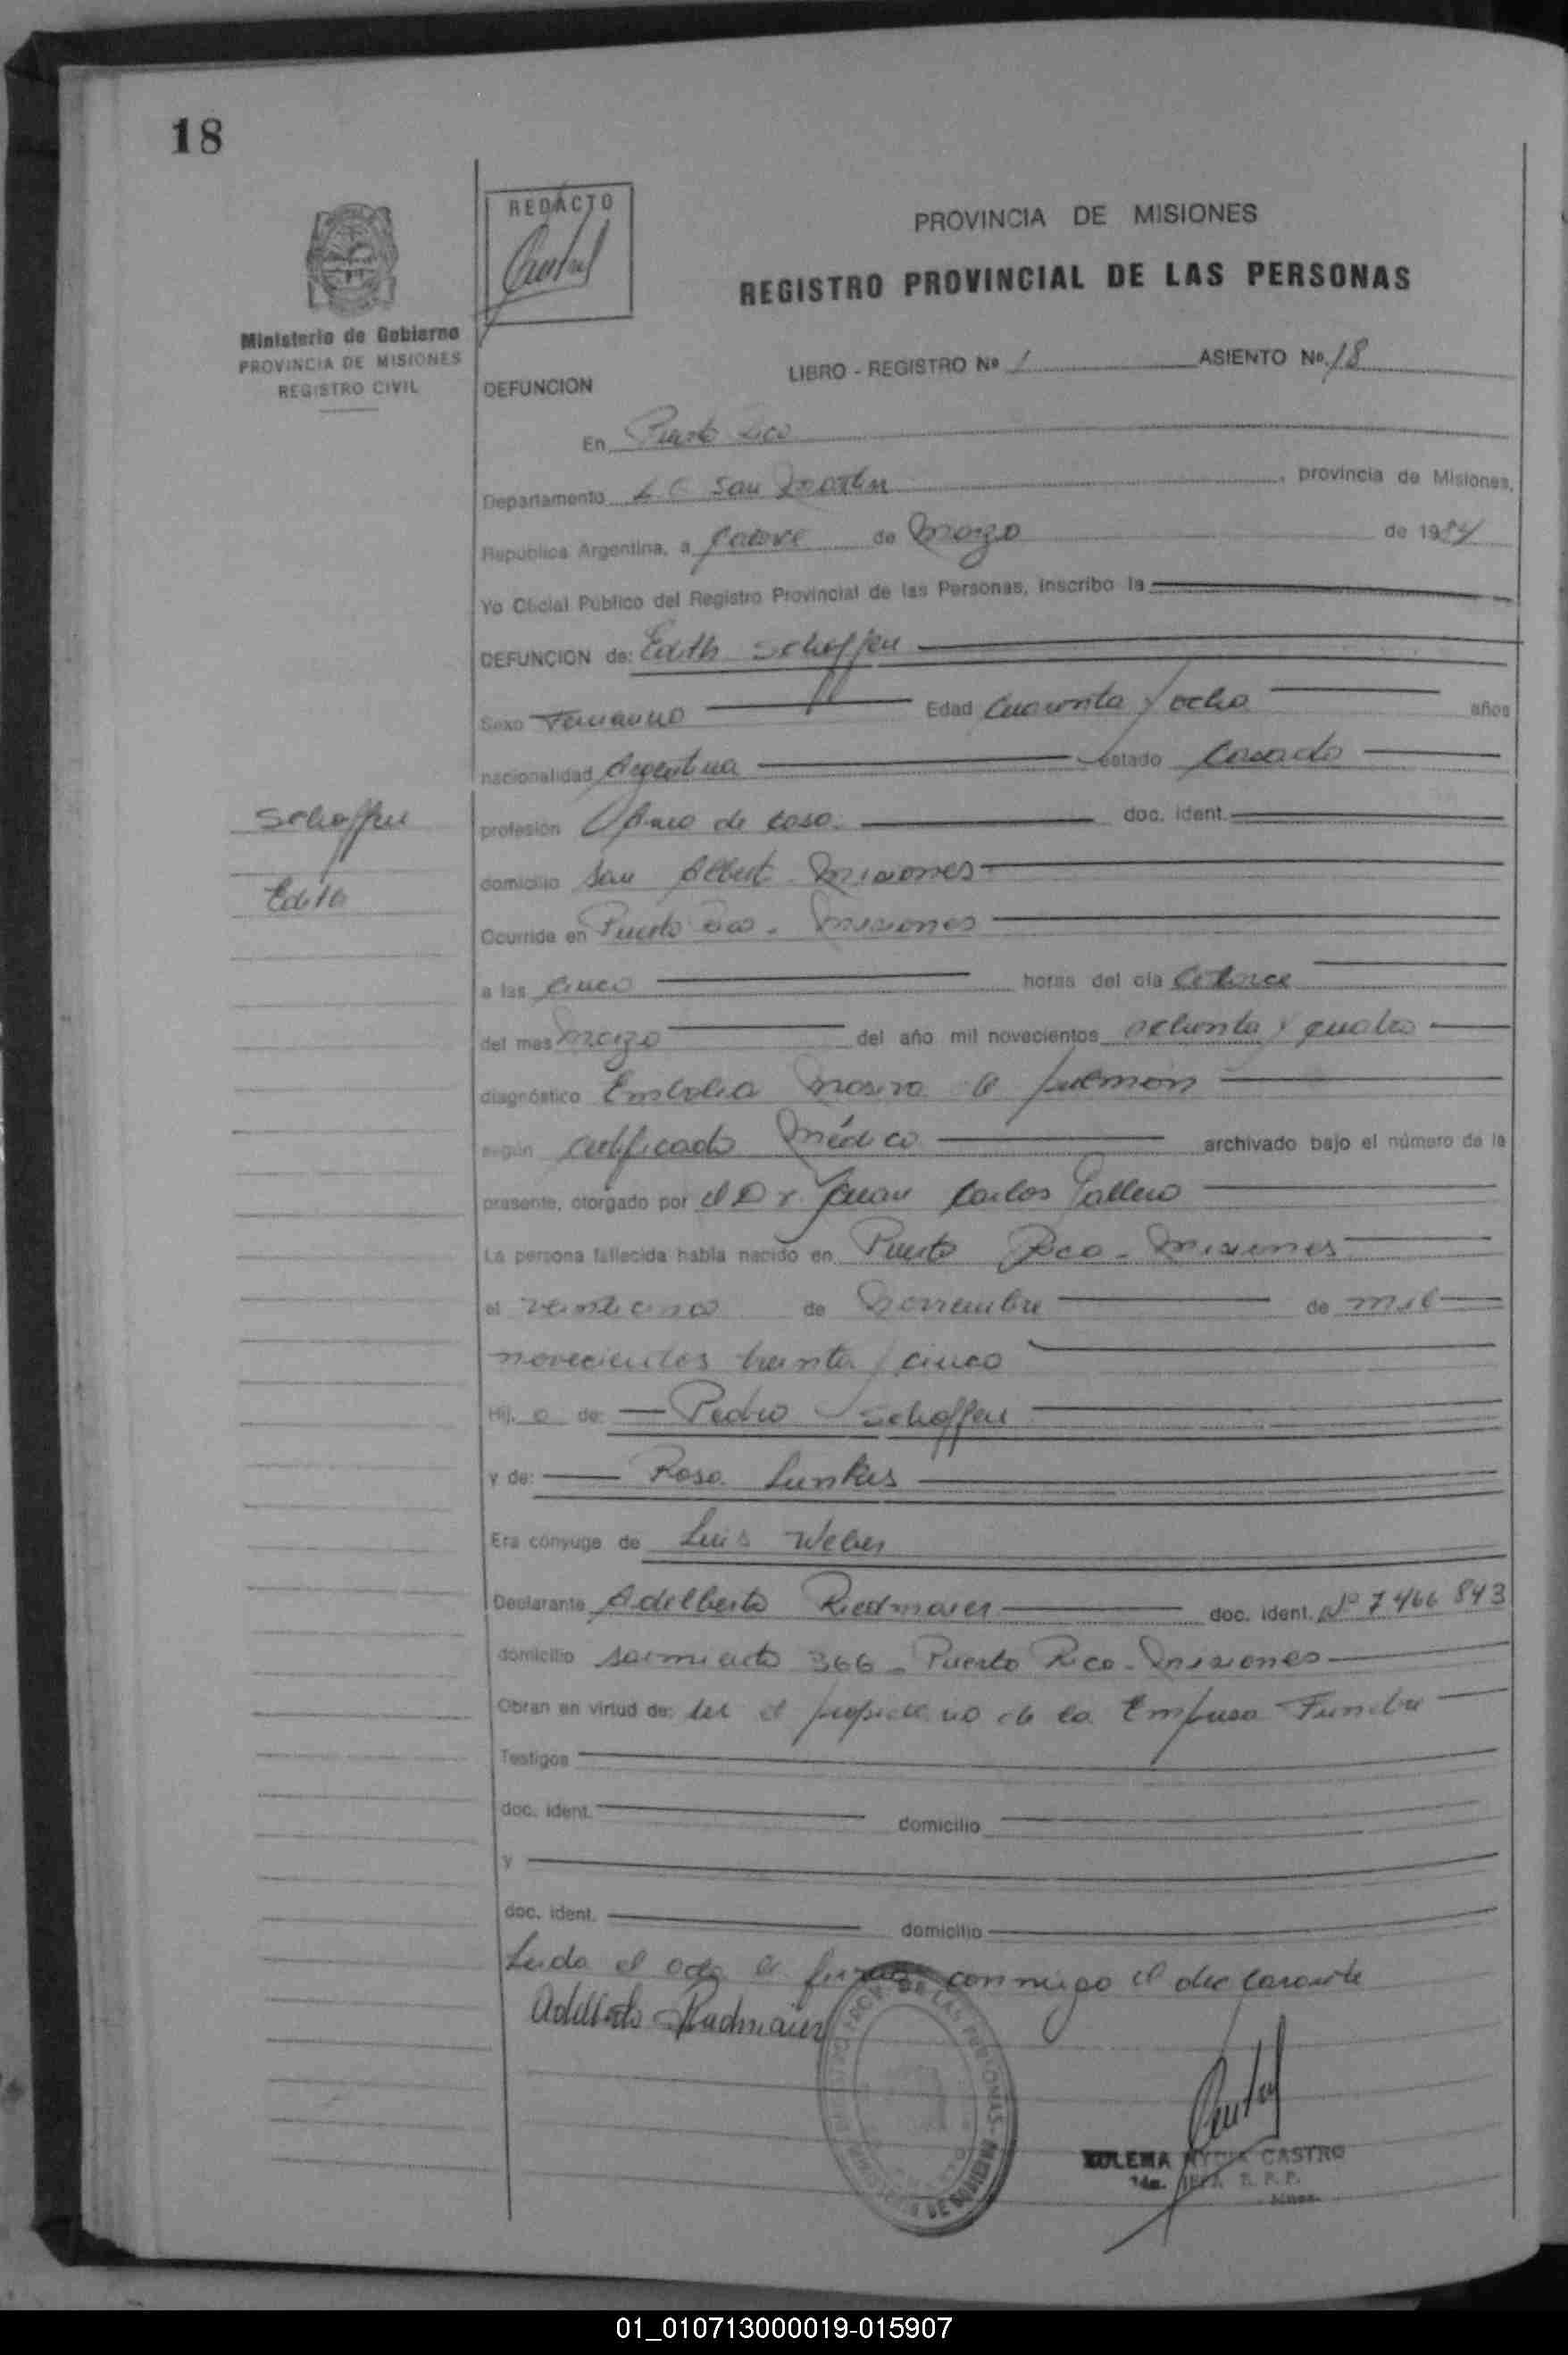 18
REDACTO
PROVINCIA DE MISIONES
REGISTRO PROVINCIAL DE LAS PERSONAS
Ministerio de Gobierno
PROVINCIA DE MISIONES
REGISTRO CIVIL
LIBRO - REGISTRO Nº 1 ASIENTO Nº. 18
DEFUNCION
En Puerto Rico
Departamento L G San Martin, provincia de Misiones,
República Argentina, a catorce de Marzo de 1984
Yo Oficial Público del Registro Provincial de las Personas, inscribo la
DEFUNCION de: Edith Schoffen
Sexo Femenino Edad Cuarenta y ocho años
nacionalidad Argentina estado Casada
Schoffen
Edith
profesión Ama de casa. doc. ident.
domicilio San Albert - Misiones
Ocurrida en Puerto Rico - Misiones
a las cinco horas del día catorce
del mes Marzo del año mil novecientos ochenta y cuatro
diagnóstico Embolia masiva de pulmon
según certificado Médico archivado bajo el número de la
presente, otorgado por el Dr. Juan Carlos
La persona fallecida había nacido en Puerto Rico - Misiones
el de Noviembre de mil
novecientos treinta y cinco
Hij. a de: Pedro Schoffen
y de: Rosa Lunkes
Era cónyuge de Luis Weber
Declarante Adelberto Riedmaier doc. ident. Nº 7 466 843
domicilio Sarmiento 366 - Puerto Rico - Misiones
Obran en virtud de: ser el propietario de la Empresa Funebre
Testigos
doc. ident. domicilio
y
doc. ident. domicilio
Leida el acta la firma conmigo el declarante
Adelberto Riedmaier
CASTRO
01_010713000019-015907